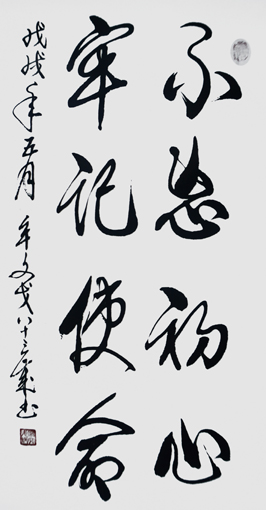 不忘初心
牢记使命
戊戌年五月 文戈八十三岁书